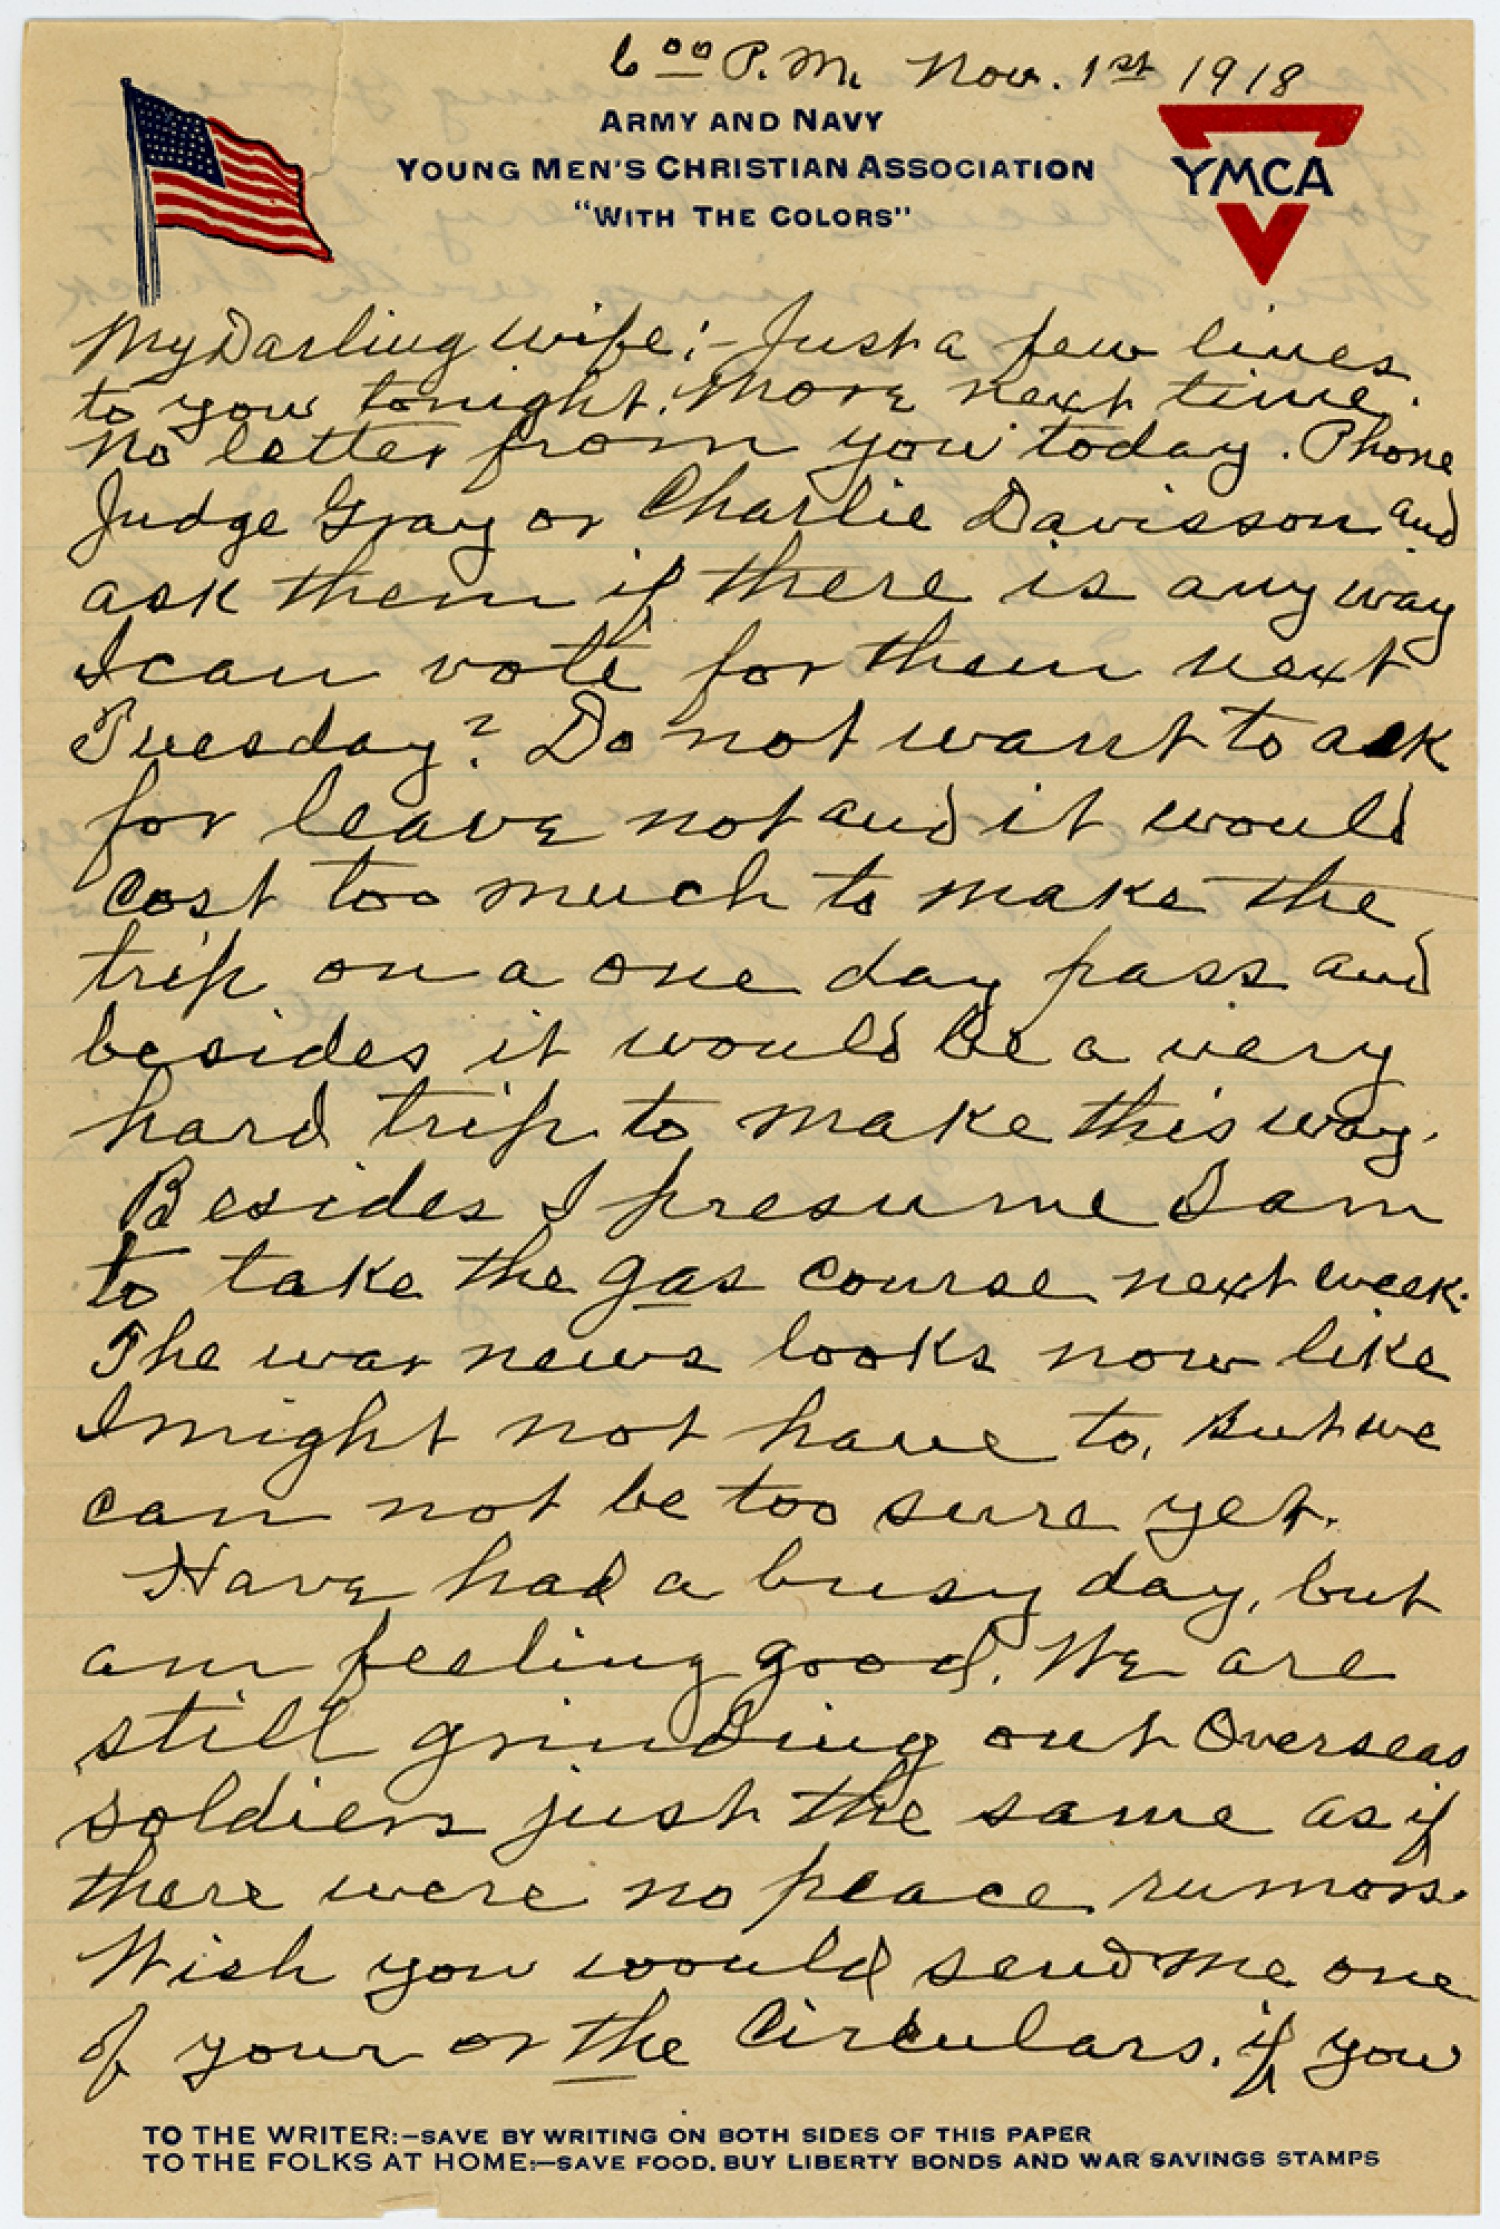 6 00 P.M. Nov. 1st 1918
ARMY AND NAVY
YOUNG MEN'S CHRISTIAN ASSOCIATION
"WITH THE COLORS"
YMCA
My Darling Wife:- Just a few lines
to you tonight. More next time.
No letter from you today. Phone
Judge Gray or Charlie Davisson and
ask them if there is any way
I can vote for them next
Tuesday? Do not want to ask
for leave not and it would
cost too much to make the
trip on a one day pass and
besides it would be a very
hard trip to make this way.
Besides I presume I am
to take the gas course next week.
The war news looks now like
I might not have to. But we
can not be too sure yet.
Have had a busy day, but
am feeling good. We are
still grinding out Overseas
soldiers just the same as if
there were no peace rumors.
Wish you would send me one
of your or the Circulars. if you
TO THE WRITER:—SAVE BY WRITING ON BOTH SIDES OF THIS PAPER
TO THE FOLKS AT HOME:—SAVE FOOD, BUY LIBERTY BONDS AND WAR SAVINGS STAMPS